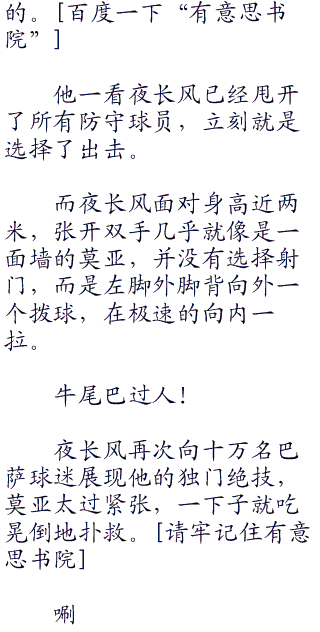 的。[百度一下“有意思书
院”]
他一看夜长风已经甩开
了所有防守球员，立刻就是
选择了出击。
而夜长风面对身高近两
米，张开双手几乎就像是一
面墙的莫亚，并没有选择射
门，而是左脚外脚背向外一
个拨球，在极速的向内一
拉。
牛尾巴过人！
夜长风再次向十万名巴
萨球迷展现他的独门绝技，
莫亚太过紧张，一下子就吃
晃倒地扑救。[请牢记住有意
思书院]
唰